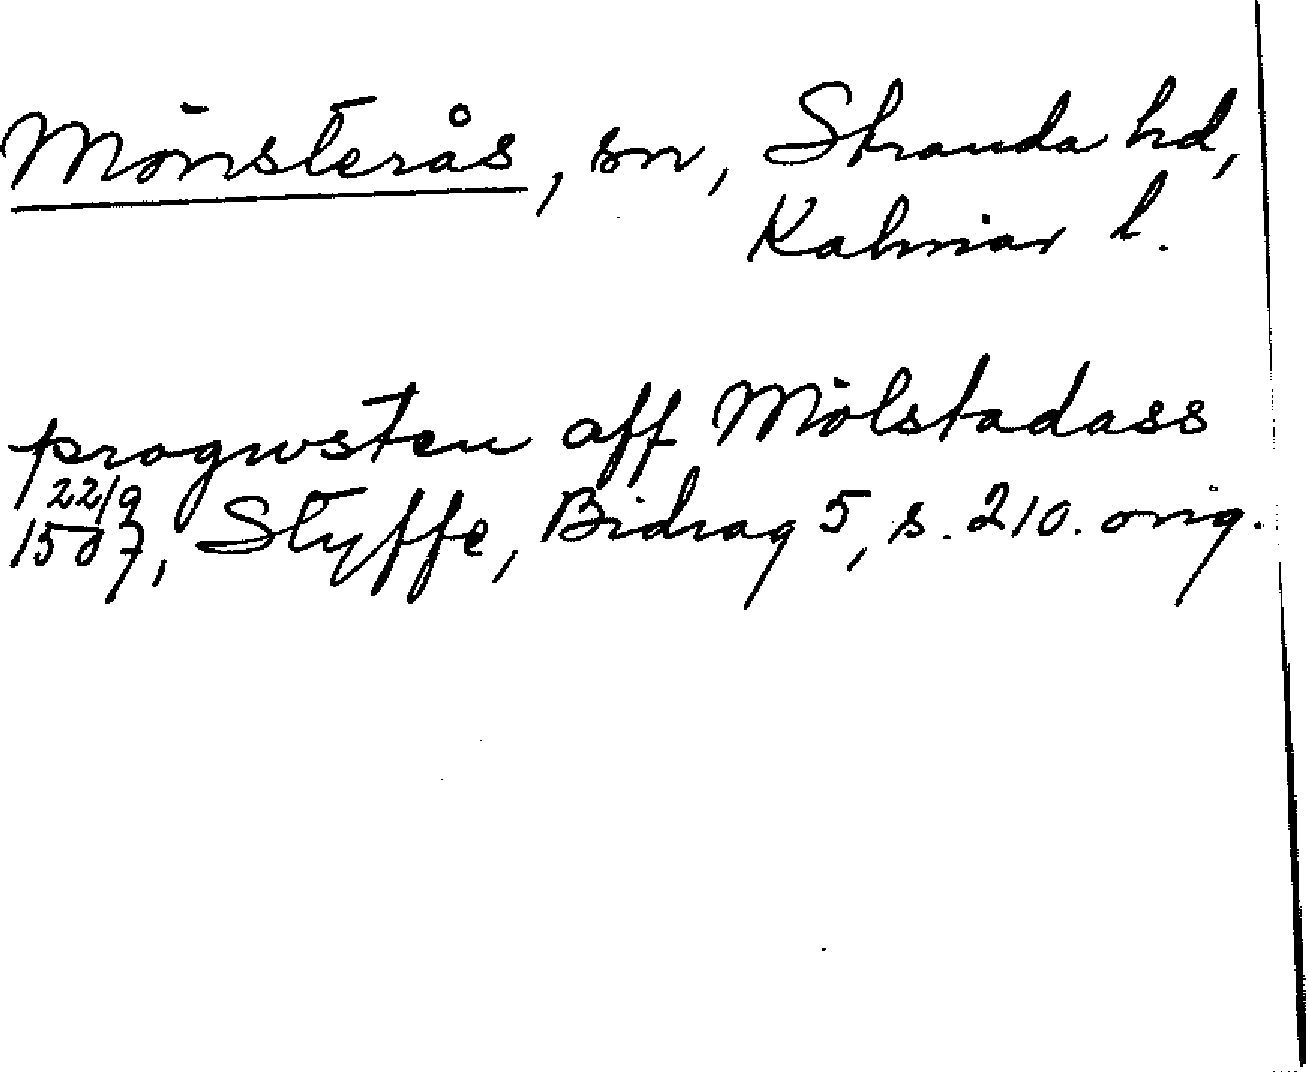 Mönsterås, sn, Stranda hd,
Kalmar l.
progwsten aff Mölstadass
22/9
1507, Styffe, Bidrag 5, s. 210. orig.